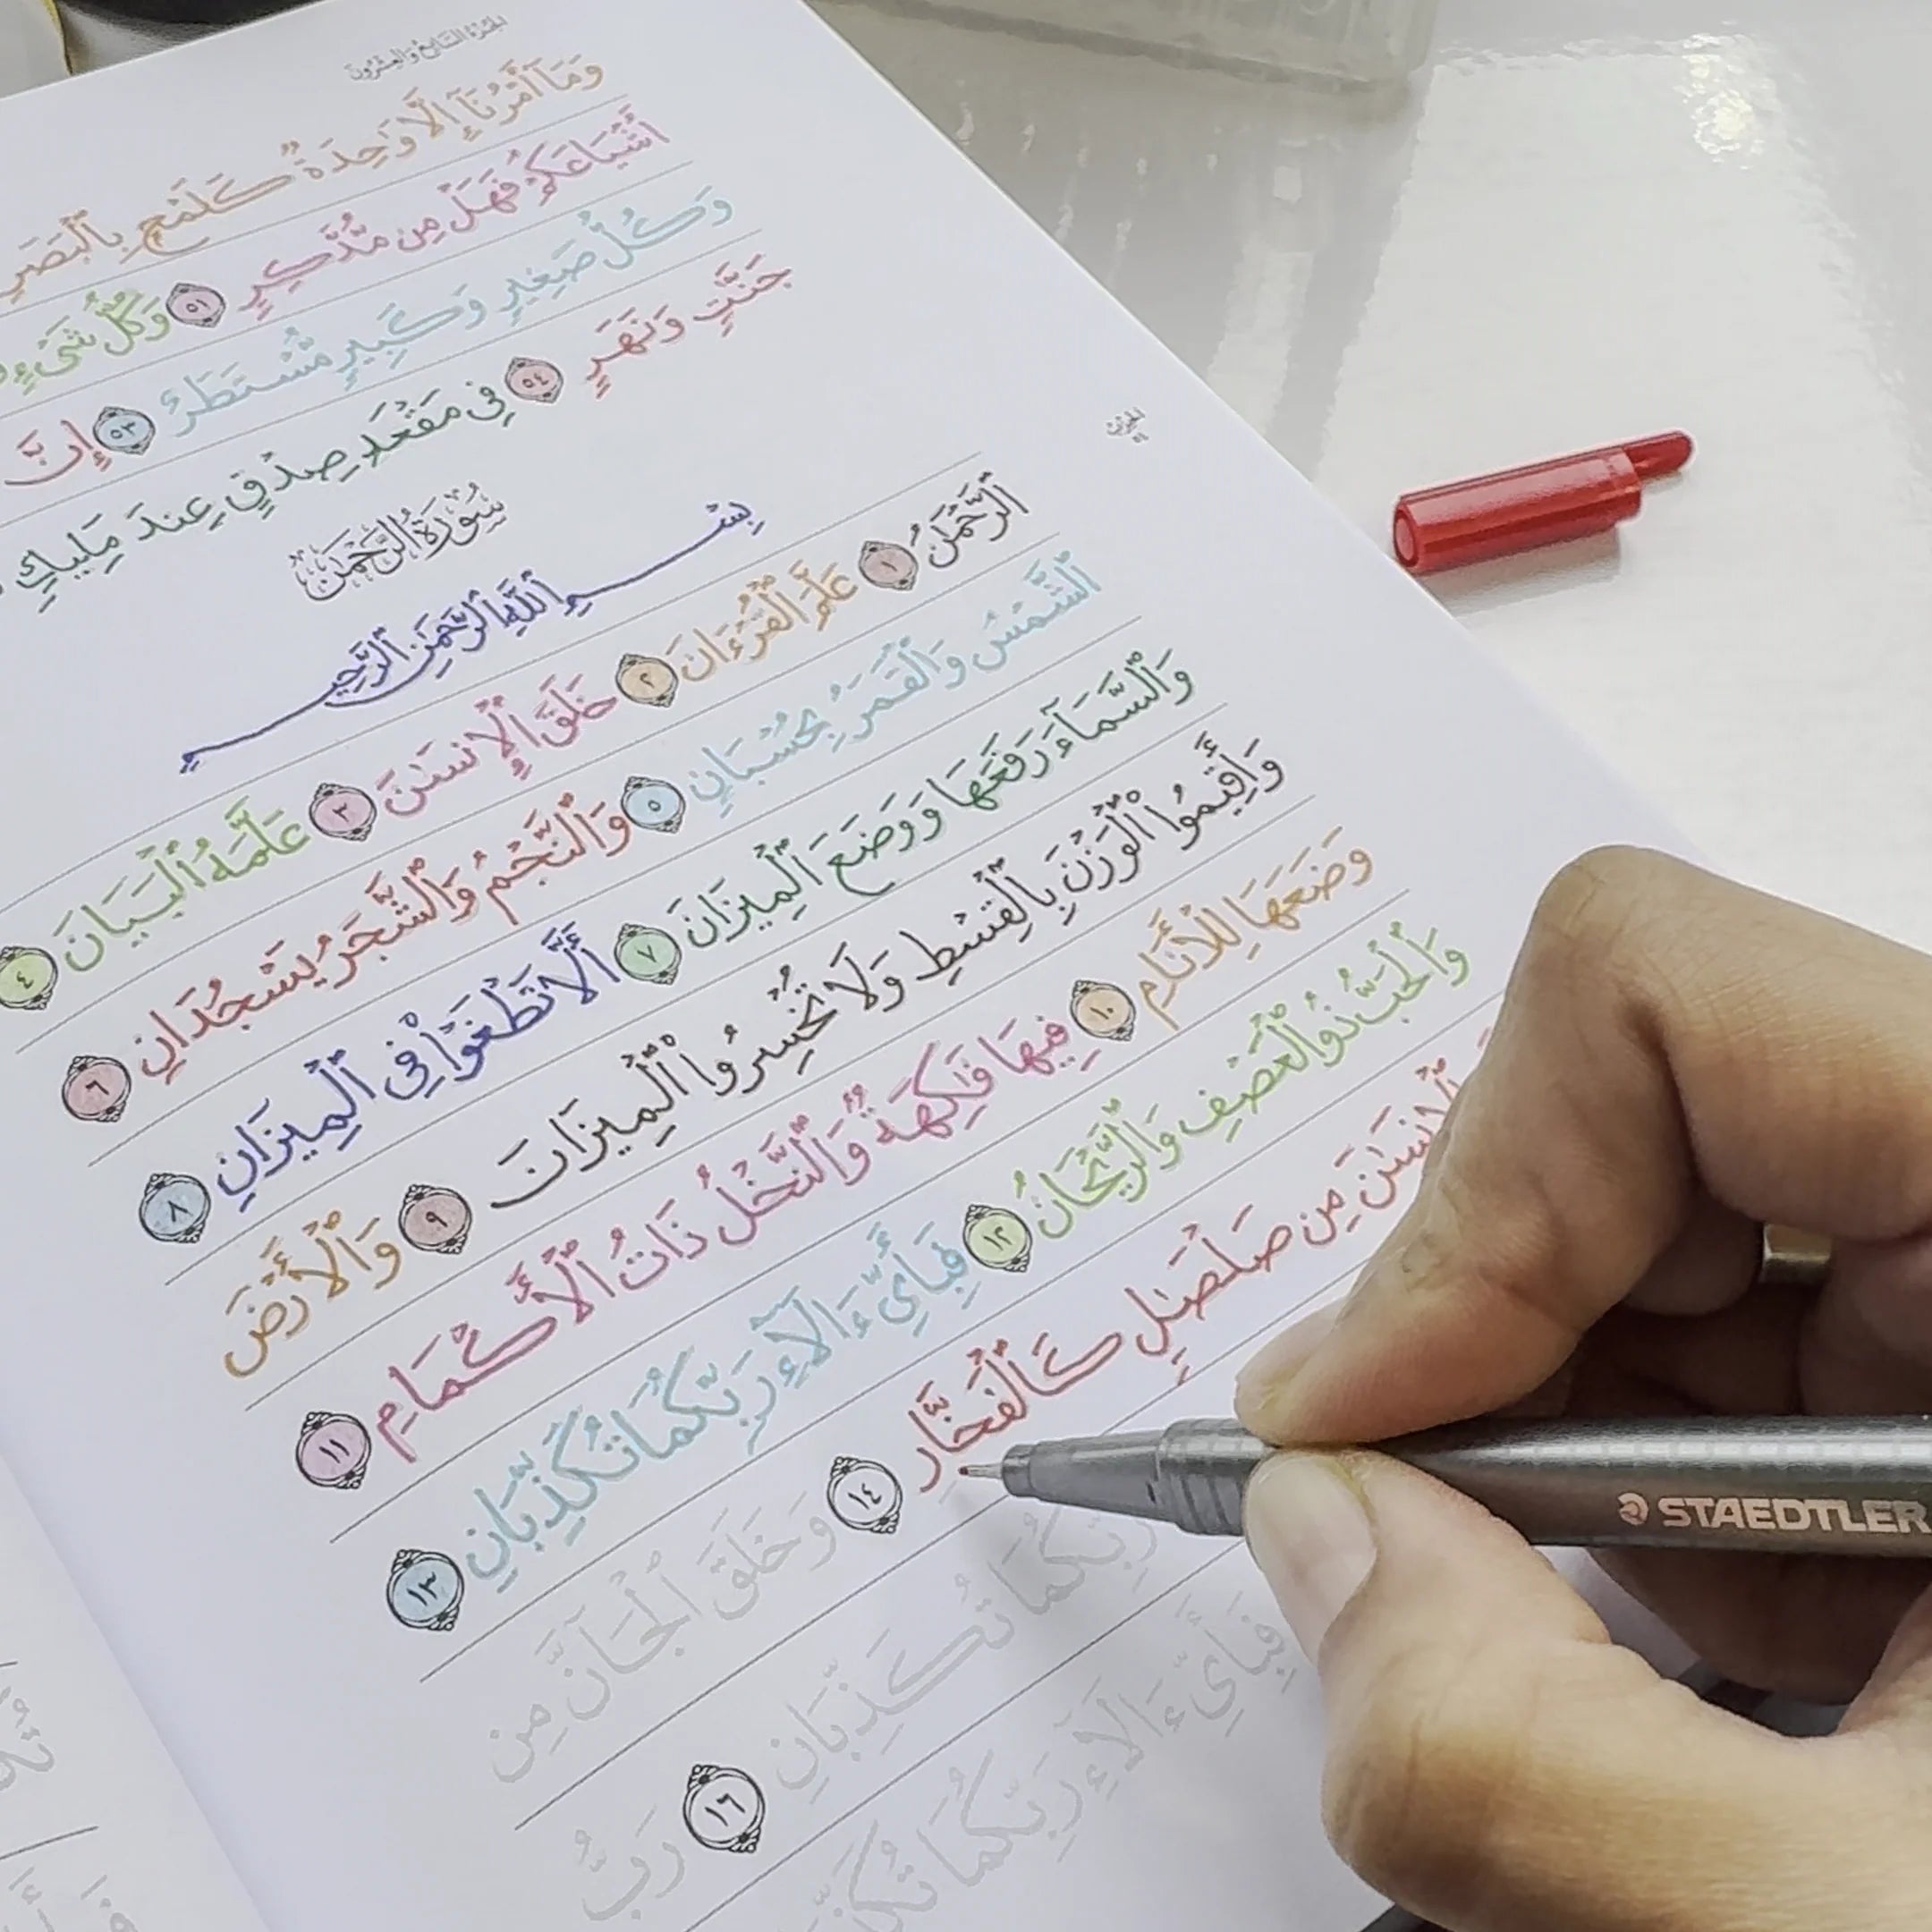 الجزء السابع والعشرون
وَمَآ أَمْرُنَآ إِلَّا وَٰحِدَةٌ كَلَمْحٍۭ بِٱلْبَصَرِ
أَشْيَاعَكُمْ فَهَلْ مِن مُّدَّكِرٍ ٥١ وَكُلُّ شَىْءٍ
وَكُلُّ صَغِيرٍ وَكَبِيرٍ مُّسْتَطَرٌ ٥٣ إِنَّ
جَنَّٰتٍ وَنَهَرٍ ٥٤ فِى مَقْعَدِ صِدْقٍ عِندَ مَلِيكٍ
سُورَةُ الرَّحْمَٰن
بِسْمِ ٱللَّهِ ٱلرَّحْمَٰنِ ٱلرَّحِيمِ
ٱلرَّحْمَٰنُ ١ عَلَّمَ ٱلْقُرْءَانَ ٢ خَلَقَ ٱلْإِنسَٰنَ ٣ عَلَّمَهُ ٱلْبَيَانَ ٤
ٱلشَّمْسُ وَٱلْقَمَرُ بِحُسْبَانٍ ٥ وَٱلنَّجْمُ وَٱلشَّجَرُ يَسْجُدَانِ ٦
وَٱلسَّمَآءَ رَفَعَهَا وَوَضَعَ ٱلْمِيزَانَ ٧ أَلَّا تَطْغَوْا۟ فِى ٱلْمِيزَانِ ٨
وَأَقِيمُوا۟ ٱلْوَزْنَ بِٱلْقِسْطِ وَلَا تُخْسِرُوا۟ ٱلْمِيزَانَ ٩ وَٱلْأَرْضَ
وَضَعَهَا لِلْأَنَامِ ١٠ فِيهَا فَٰكِهَةٌ وَٱلنَّخْلُ ذَاتُ ٱلْأَكْمَامِ ١١
وَٱلْحَبُّ ذُو ٱلْعَصْفِ وَٱلرَّيْحَانُ ١٢ فَبِأَىِّ ءَالَآءِ رَبِّكُمَا تُكَذِّبَانِ ١٣
ٱلْإِنسَٰنَ مِن صَلْصَٰلٍ كَٱلْفَخَّارِ ١٤ وَخَلَقَ ٱلْجَآنَّ مِن
رَبِّكُمَا تُكَذِّبَانِ ١٦ رَبُّ
فَبِأَىِّ ءَالَآءِ رَبِّكُمَا تُكَذِّبَانِ
STAEDTLER